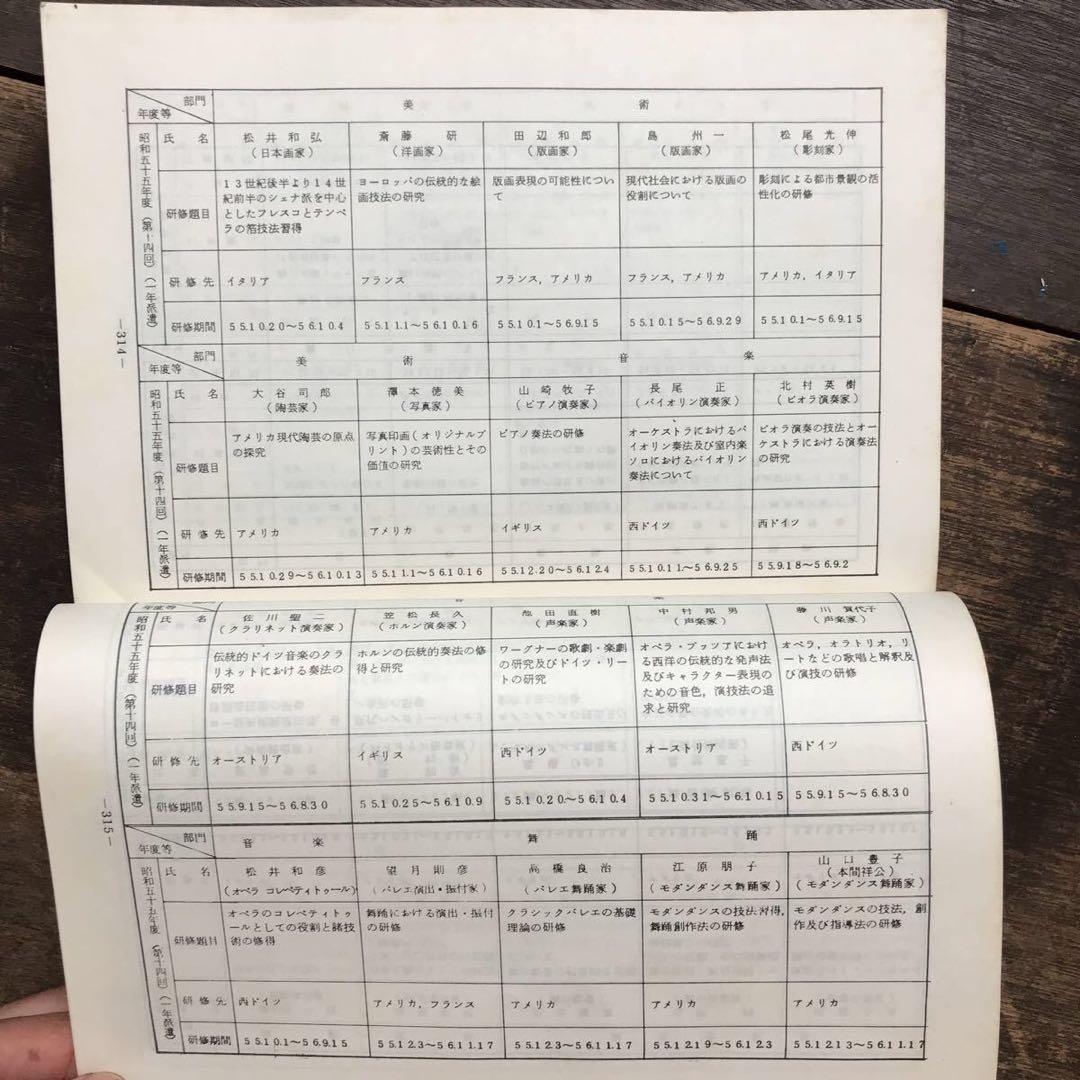 部門
美 術
年度等
昭和五十五年度(第十四回)(一年派遣)
氏 名
松 井 和 弘
(日本画家)
斎 藤 研
(洋画家)
田 辺 和 郎
(版画家)
島 州 一
(版画家)
松 尾 光 伸
(彫刻家)
研修題目
13世紀後半より14世
紀前半のシェナ派を中心
としたフレスコとテンペ
ラの箔技法習得
ヨーロッパの伝統的な絵
画技法の研究
版画表現の可能性につい
て
現代社会における版画の
役割について
彫刻による都市景観の活
性化の研修
研 修 先
イタリア
フランス
フランス,アメリカ
フランス,アメリカ
アメリカ,イタリア
研修期間
55.10.20〜56.10.4
55.11.1〜56.10.16
55.10.1〜56.9.15
55.10.15〜56.9.29
55.10.1〜56.9.15
—314—
部門
美 術
音 楽
年度等
昭和五十五年度(第十四回)(一年派遣)
氏 名
大 谷 司 郎
(陶芸家)
澤 本 徳 美
(写真家)
山 崎 牧 子
(ピアノ演奏家)
長 尾 正
(バイオリン演奏家)
北 村 英 樹
(ビオラ演奏家)
研修題目
アメリカ現代陶芸の原点
の探究
写真印画(オリジナルプ
リント)の芸術性とその
価値の研究
ピアノ奏法の研修
オーケストラにおけるバ
イオリン奏法及び室内楽
ソロにおけるバイオリン
奏法について
ビオラ演奏の技法とオー
ケストラにおける演奏法
の研究
研 修 先
アメリカ
アメリカ
イギリス
西ドイツ
西ドイツ
研修期間
55.10.29〜56.10.13
55.11.1〜56.10.16
55.12.20〜56.12.4
55.10.11〜56.9.25
55.9.18〜56.9.2
年度等
音 楽
昭和五十五年度(第十四回)(一年派遣)
氏 名
佐 川 聖 二
(クラリネット演奏家)
笠 松 長 久
(ホルン演奏家)
池 田 直 樹
(声楽家)
中 村 邦 男
(声楽家)
藤 川 賀代子
(声楽家)
研修題目
伝統的ドイツ音楽のクラ
リネットにおける奏法の
研究
ホルンの伝統的奏法の修
得と研究
ワーグナーの歌劇・楽劇
の研究及びドイツ・リー
トの研究
オペラ・ブッファにおけ
る西洋の伝統的な発声法
及びキャラクター表現の
ための音色,演技法の追
求と研究
オペラ,オラトリオ,リ
ートなどの歌唱と解釈及
び演技の研修
研 修 先
オーストリア
イギリス
西ドイツ
オーストリア
西ドイツ
研修期間
55.9.15〜56.8.30
55.10.25〜56.10.9
55.10.20〜56.10.4
55.10.31〜56.10.15
55.9.15〜56.8.30
—315—
部門
音 楽
舞 踊
年度等
昭和五十五年度(第十四回)(一年派遣)
氏 名
松 井 和 彦
(オペラ コレペティトゥール)
望 月 則 彦
(バレエ演出・振付家)
高 橋 良 治
(バレエ舞踊家)
江 原 朋 子
(モダンダンス舞踊家)
山 口 豊 子
(本間祥公)
(モダンダンス舞踊家)
研修題目
オペラのコレペティトゥ
ールとしての役割と諸技
術の修得
舞踊における演出・振付
の研修
クラシックバレエの基礎
理論の研修
モダンダンスの技法習得,
舞踊創作法の研修
モダンダンスの技法,創
作及び指導法の研修
研 修 先
西ドイツ
アメリカ,フランス
アメリカ
アメリカ
アメリカ
研修期間
55.10.1〜56.9.15
55.12.3〜56.11.17
55.12.3〜56.11.17
55.12.19〜56.12.3
55.12.13〜56.11.17